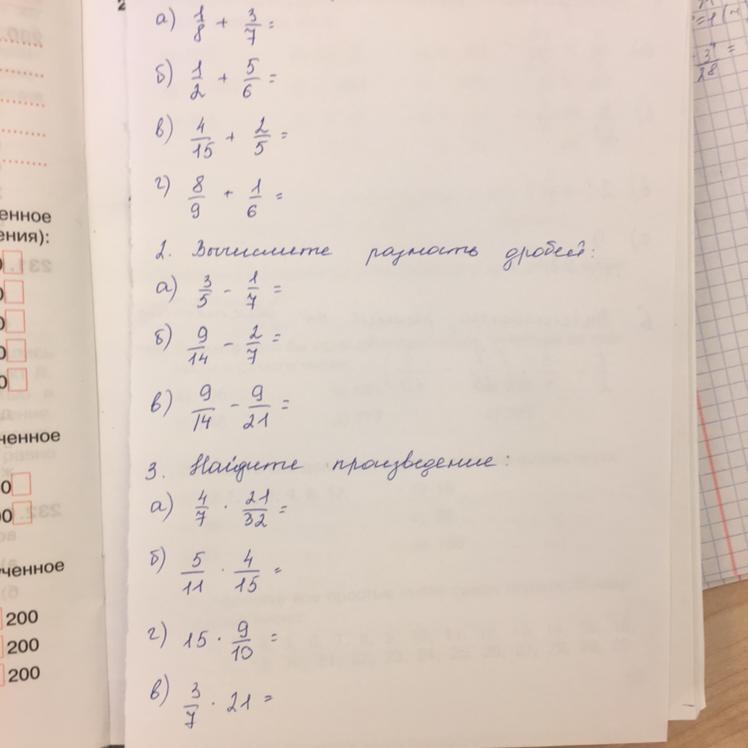 а) 1/8 + 3/7 =
б) 1/2 + 5/6 =
в) 4/15 + 2/5 =
г) 8/9 + 1/6 =
2. Вычислите разность дробей:
а) 3/5 - 1/7 =
б) 9/14 - 2/7 =
в) 9/14 - 9/21 =
3. Найдите произведение:
а) 4/7 · 21/32 =
б) 5/11 · 4/15 =
г) 15 · 9/10 =
в) 3/7 · 21 =
енное
ения):
ченное
0
00
ученное
200
200
200